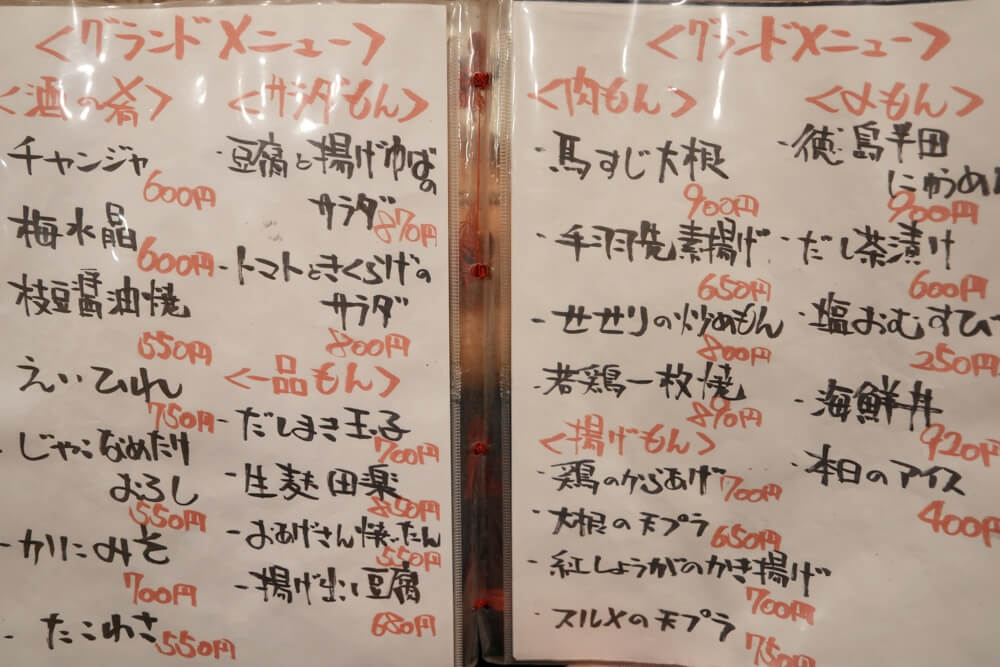 <グランドメニュー>
<酒の肴>
チャンジャ
600円
梅水晶
600円
枝豆醤油焼
550円
えいひれ
750円
じゃこなめたけ
おろし
550円
・カリにみそ
700円
・たこわさ
550円
<サラダもん>
・豆腐と揚げゆばの
サラダ
870円
・トマトときくらげの
サラダ
800円
<一品もん>
・だしまき玉子
700円
・生麩田楽
850円
・おあげさん焼いたん
550円
・揚げ出し豆腐
680円
<グランドメニュー>
<肉もん>
・馬すじ大根
900円
・手羽先素揚げ
650円
・せせりの炒めもん
800円
・若鶏一枚焼
890円
<揚げもん>
・鶏のからあげ
700円
・大根の天プラ
650円
・紅しょうがのかき揚げ
700円
・スルメの天プラ
750円
<〆もん>
・徳島半田
にゅうめん
900円
・だし茶漬け
600円
・塩おむすび
250円
・海鮮丼
920円
・本日のアイス
400円